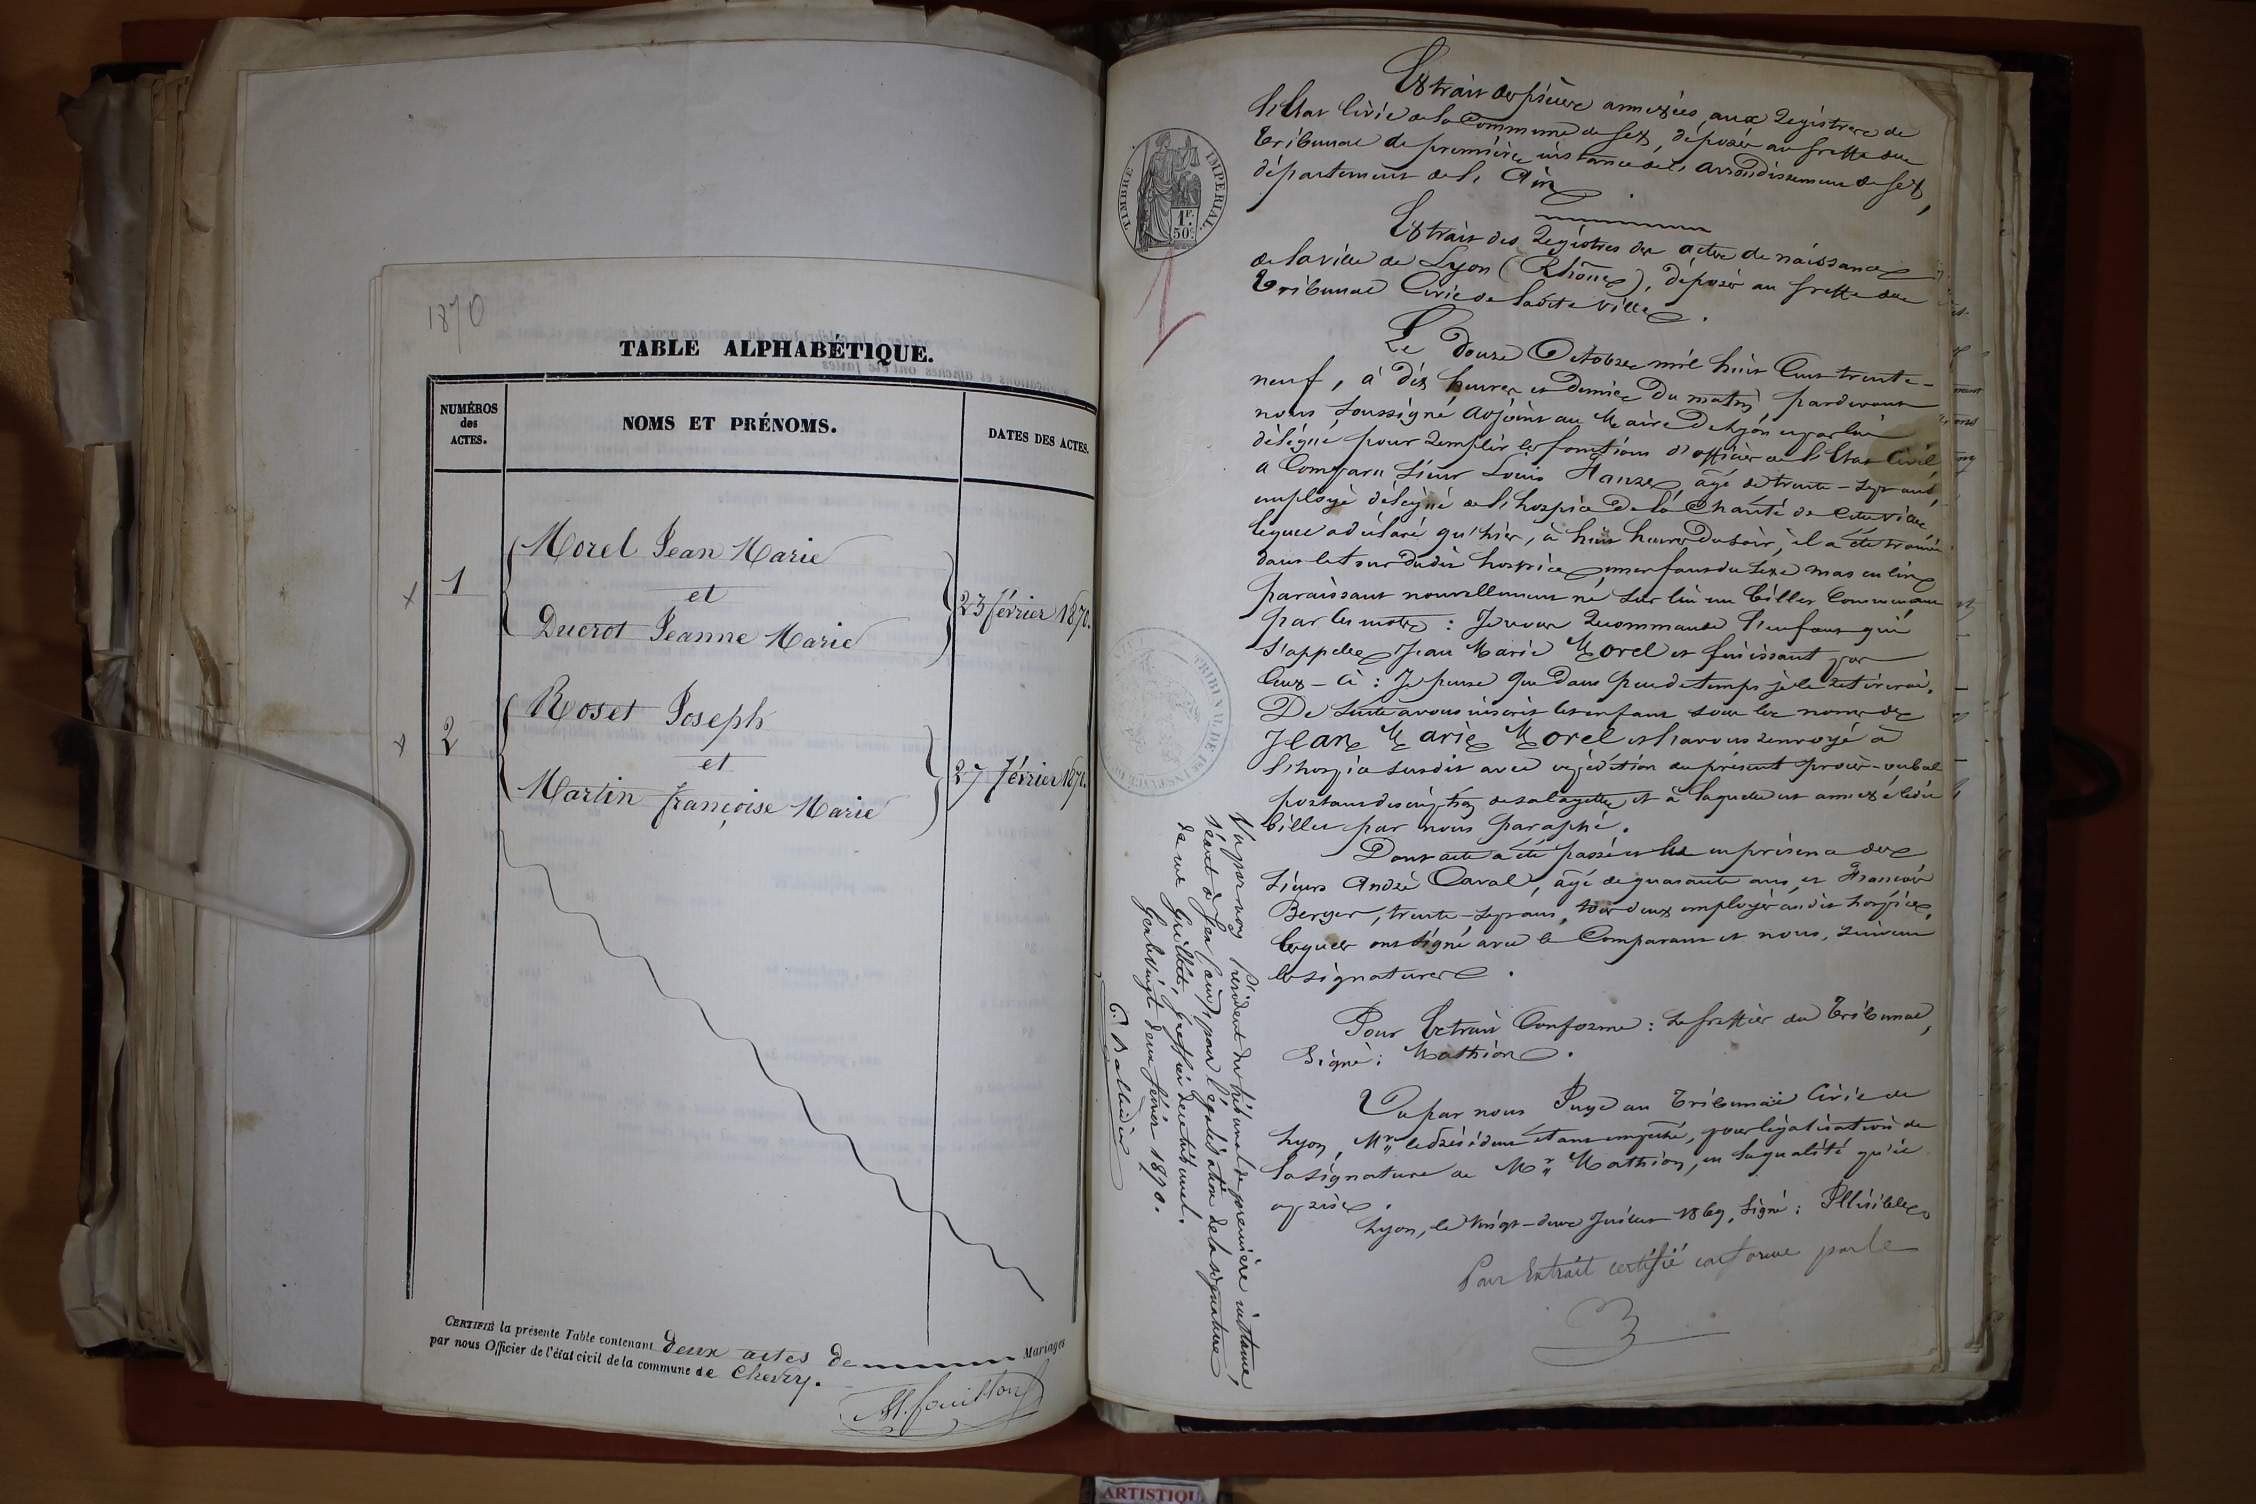 1870
TABLE ALPHABÉTIQUE.
NUMÉROS
des
ACTES.
NOMS ET PRÉNOMS.
DATES DES ACTES.
1
Morel Jean Marie
et
Ducrot Jeanne Marie
23 février 1870.
2
Roset Joseph
et
Martin françoise Marie
27 février 1870.
CERTIFIÉ la présente Table contenant deux actes de Mariages
par nous Officier de l'état civil de la commune de Chevry.
TIMBRE IMPERIAL.
1F.
50c.
Extrait des pièces annexées aux Registres de
l'Etat Civil de la Commune de Gex, déposés au Greffe du
Tribunal de première instance de l'arrondissement de Gex,
département de l'Ain
Extrait des Registres des actes de naissances
de la ville de Lyon (Rhône), déposés au Greffe du
Tribunal Civil de ladite Ville.
Le Douze Octobre mil huit Cent trente-
neuf, à dix heures et demie du matin, pardevant
nous soussigné adjoint au Maire de Lyon et par lui
délégué pour remplir les fonctions d'officier de l'Etat Civil,
a Comparu Sieur Louis Hanze, âgé de trente-sept ans,
employé délégué de l'hospice de la Charité de cette Ville,
lequel a déclaré qu'hier, à huit heures du soir, il a été trouvé
dans le tour dudit hospice un enfant du sexe masculin
paraissant nouvellement né sur lui un billet Commençant
par les mots : Je vous recommande l'enfant qui
s'appelle Jean Marie Morel et finissant par
Ceux-Ci : Je pense que dans peu de temps je le retirerai.
De suite avons inscrit cet enfant sous les noms de
Jean Marie Morel et l'avons renvoyé à
l'hospice susdit avec expédition du présent procès-verbal
portant description de sa layette et à laquelle est annexé ledit
billet par nous paraphé.
Dont acte a été passé et lu en présence des
Sieurs André Caval, âgé de quarante ans, et François
Berger, trente-sept ans, tous deux employés audit hospice,
lesquels ont signé avec le Comparant et nous, suivent
les signatures.
Pour Extrait Conforme : Le Greffier du Tribunal,
Signé : Mathion.
Vu par nous Juge au Tribunal Civil de
Lyon, Mr le Président étant empêché, pour légalisation de
la signature de Mr Mathion, en la qualité qu'il
a prise.
Lyon, le Vingt-deux Juillet 1869, Signé : Illisible.
Pour Extrait certifié conforme par le
Vu par nous Président du tribunal de première instance,
séant à Gex (ain), pour légalisation de la signature
de me Guillot, Greffier de ce tribunal.
Gex le vingt deux février 1870.
TRIBUNAL DE 1RE INSTANCE
ARTISTIQU